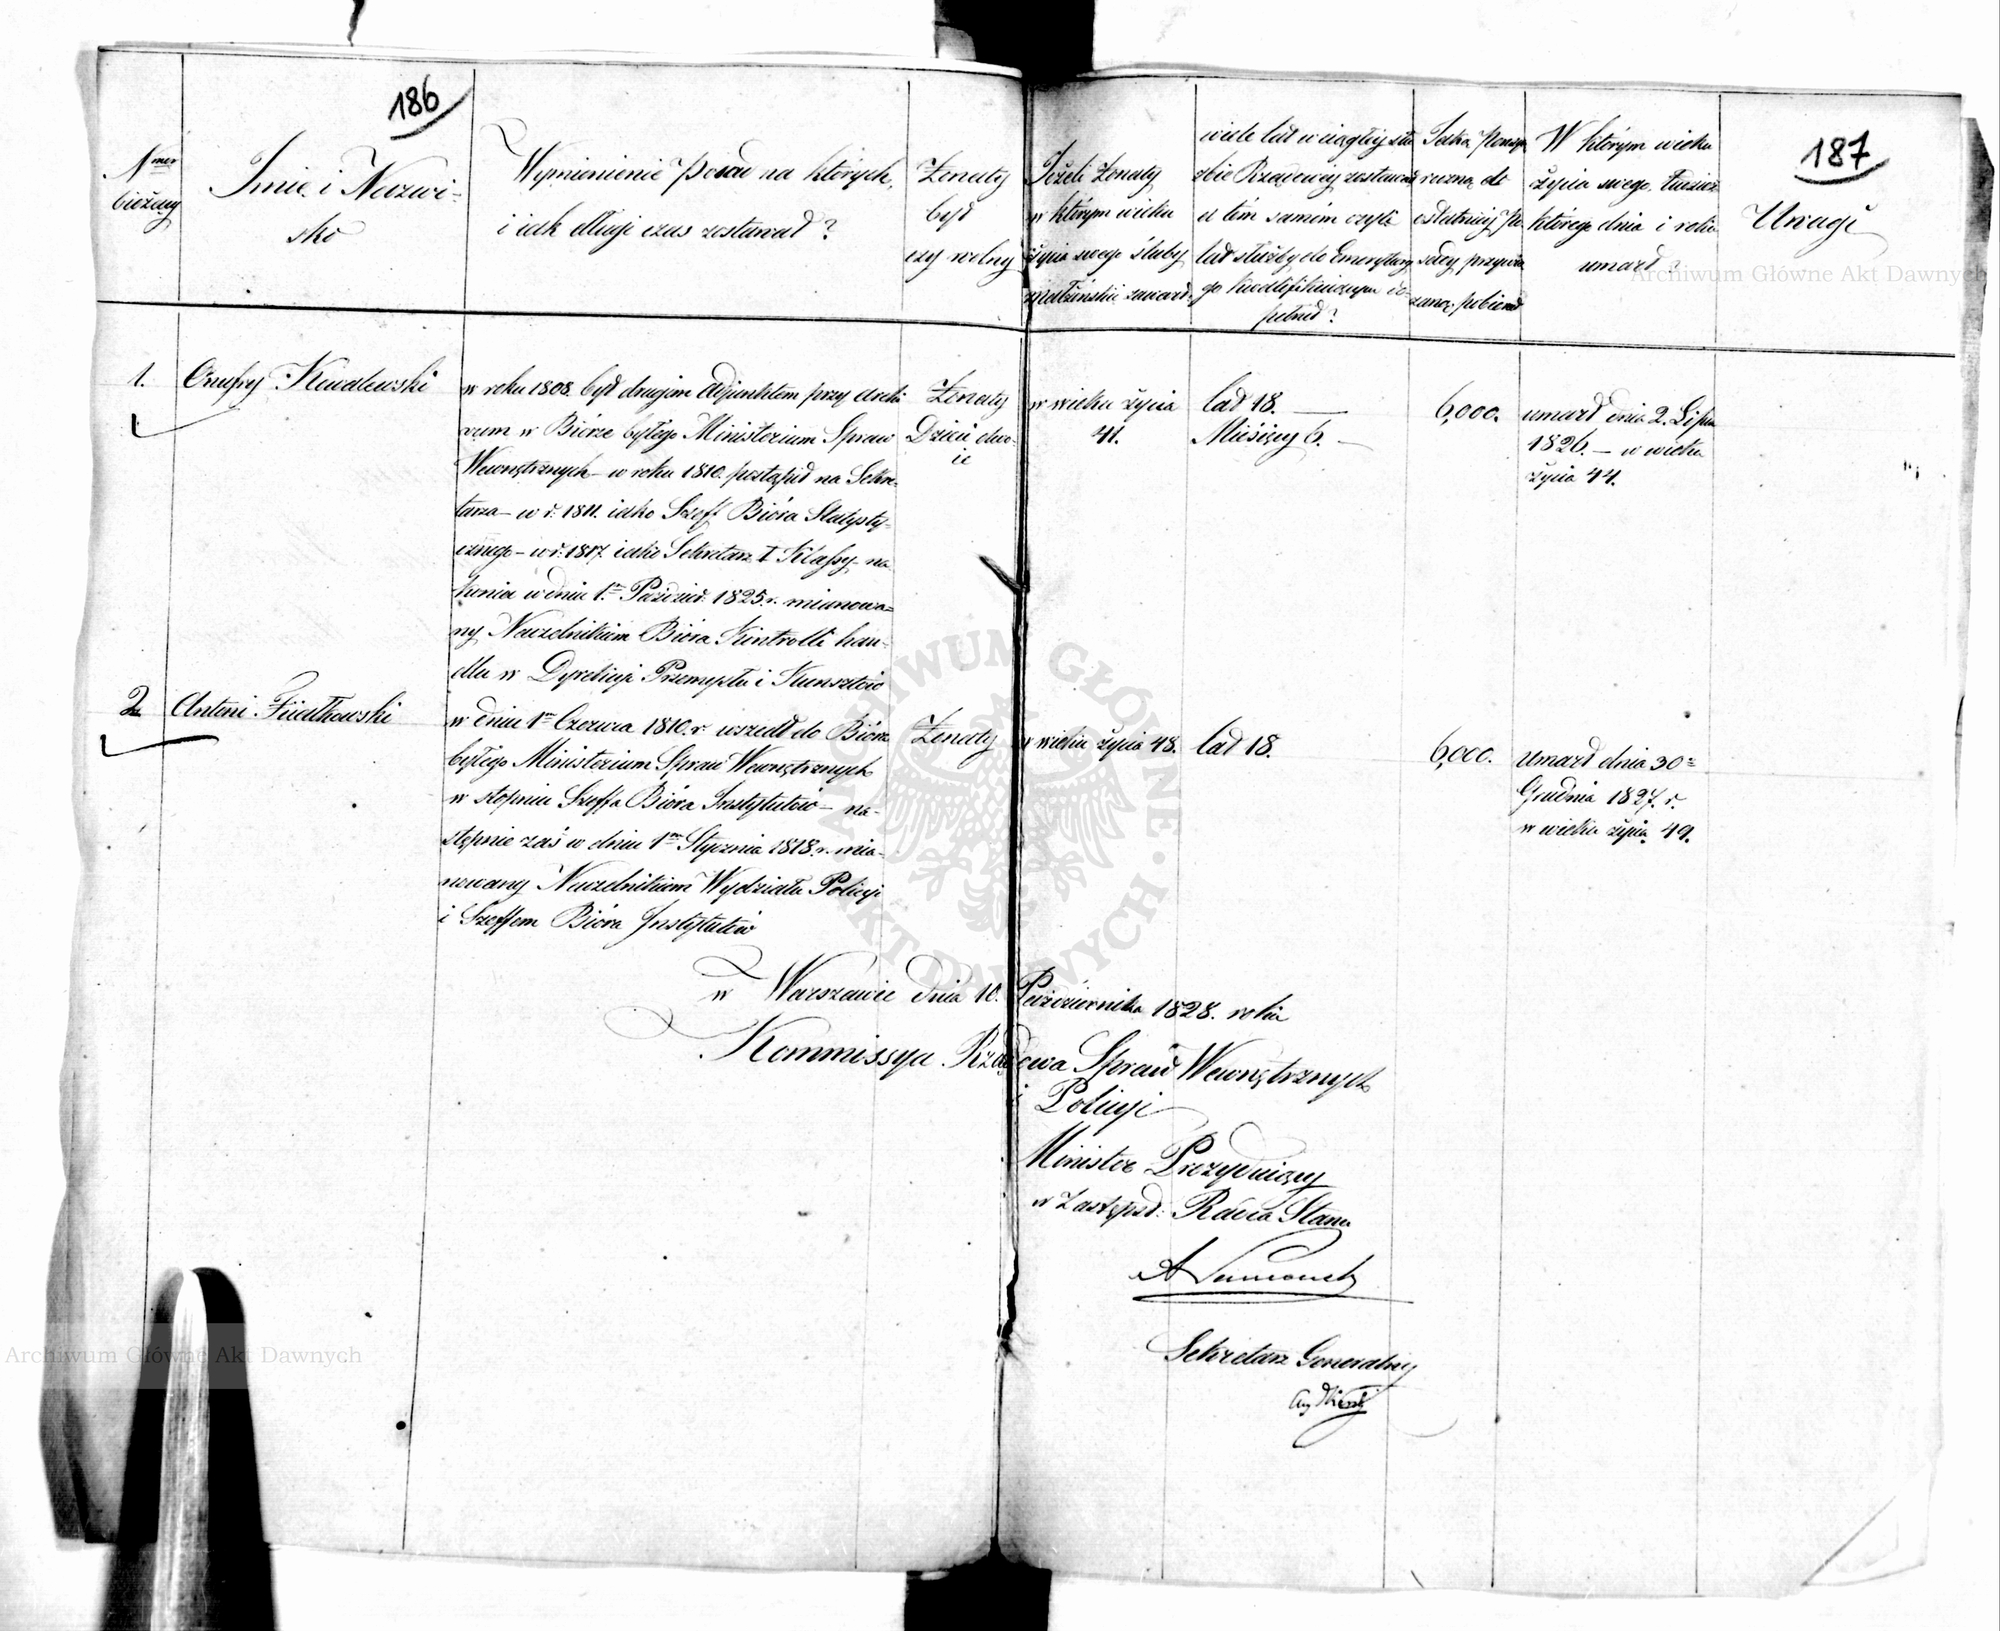 186
187
Nmer
bieżący
Imie i Nazwi-
sko
Wymienienie posad na których,
i iak długi czas zostawał?
Żonaty
był
czy wolny
Jeżeli żonaty
w którym wieku
życia swego śluby
małżeńskie zawarł
wiele lat w ciągłej słu
żbie Rządowej zostawał
a tém samém czyli
lat służby do Emerytury
go kwalifikującym do-
pełnił?
Jaka pensya
roczna do
ostatniej po
sady przywią
zaną pobierał
W którym wieku
życia swego, tudzież
którego dnia i roku
umarł?
Uwagi
Archiwum Główne Akt Dawnych
1.
Onufry Kowalewski
w roku 1808. był drugim Adjunktem przy archi
wum w Biórze byłego Ministerium Spraw
Wewnętrznych – w roku 1810. postąpił na Sekre-
tarza – w r. 1811. iako Szef Bióra Statysty-
cznego – w r. 1817. iako Sekretarz I Klassy – na
koniec w dniu 1. Paździer: 1825 r. mianowa-
ny Naczelnikiem Bióra Kontrolli han-
dlu w Dyrekcji Przemysłu i Kunsztów
Żonaty
Dzieci dwo-
ie
w wieku życia
41.
lat 18. —
Miesięcy 6. —
6,000.
umarł dnia 2. Lipca
1826. – w wieku
życia 44.
2
Antoni Fiałkowski
w dniu 1m Czerwca 1810. r. wszedł do Bióra
byłego Ministerium Spraw Wewnętrznych
w stopniu Szeffa Bióra Instytutów – na-
stępnie zaś w dniu 1m Stycznia 1818. r. mia-
nowany Naczelnikiem Wydziału Policyi
i Szeffem Bióra Instytutów
Żonaty
w wieku życia 48.
lat 18.
6,000.
umarł dnia 30
Grudnia 1827. r.
w wieku życia 49.
w Warszawie dnia 10. Października 1828. roku
Kommissya Rządowa Spraw Wewnętrznych
i Policyi
Minister Prezyduiący
w Zastępst: Radca Stanu
Sekretarz Generalny
Archiwum Główne Akt Dawnych
ARCHIWUM GŁÓWNE AKT DAWNYCH